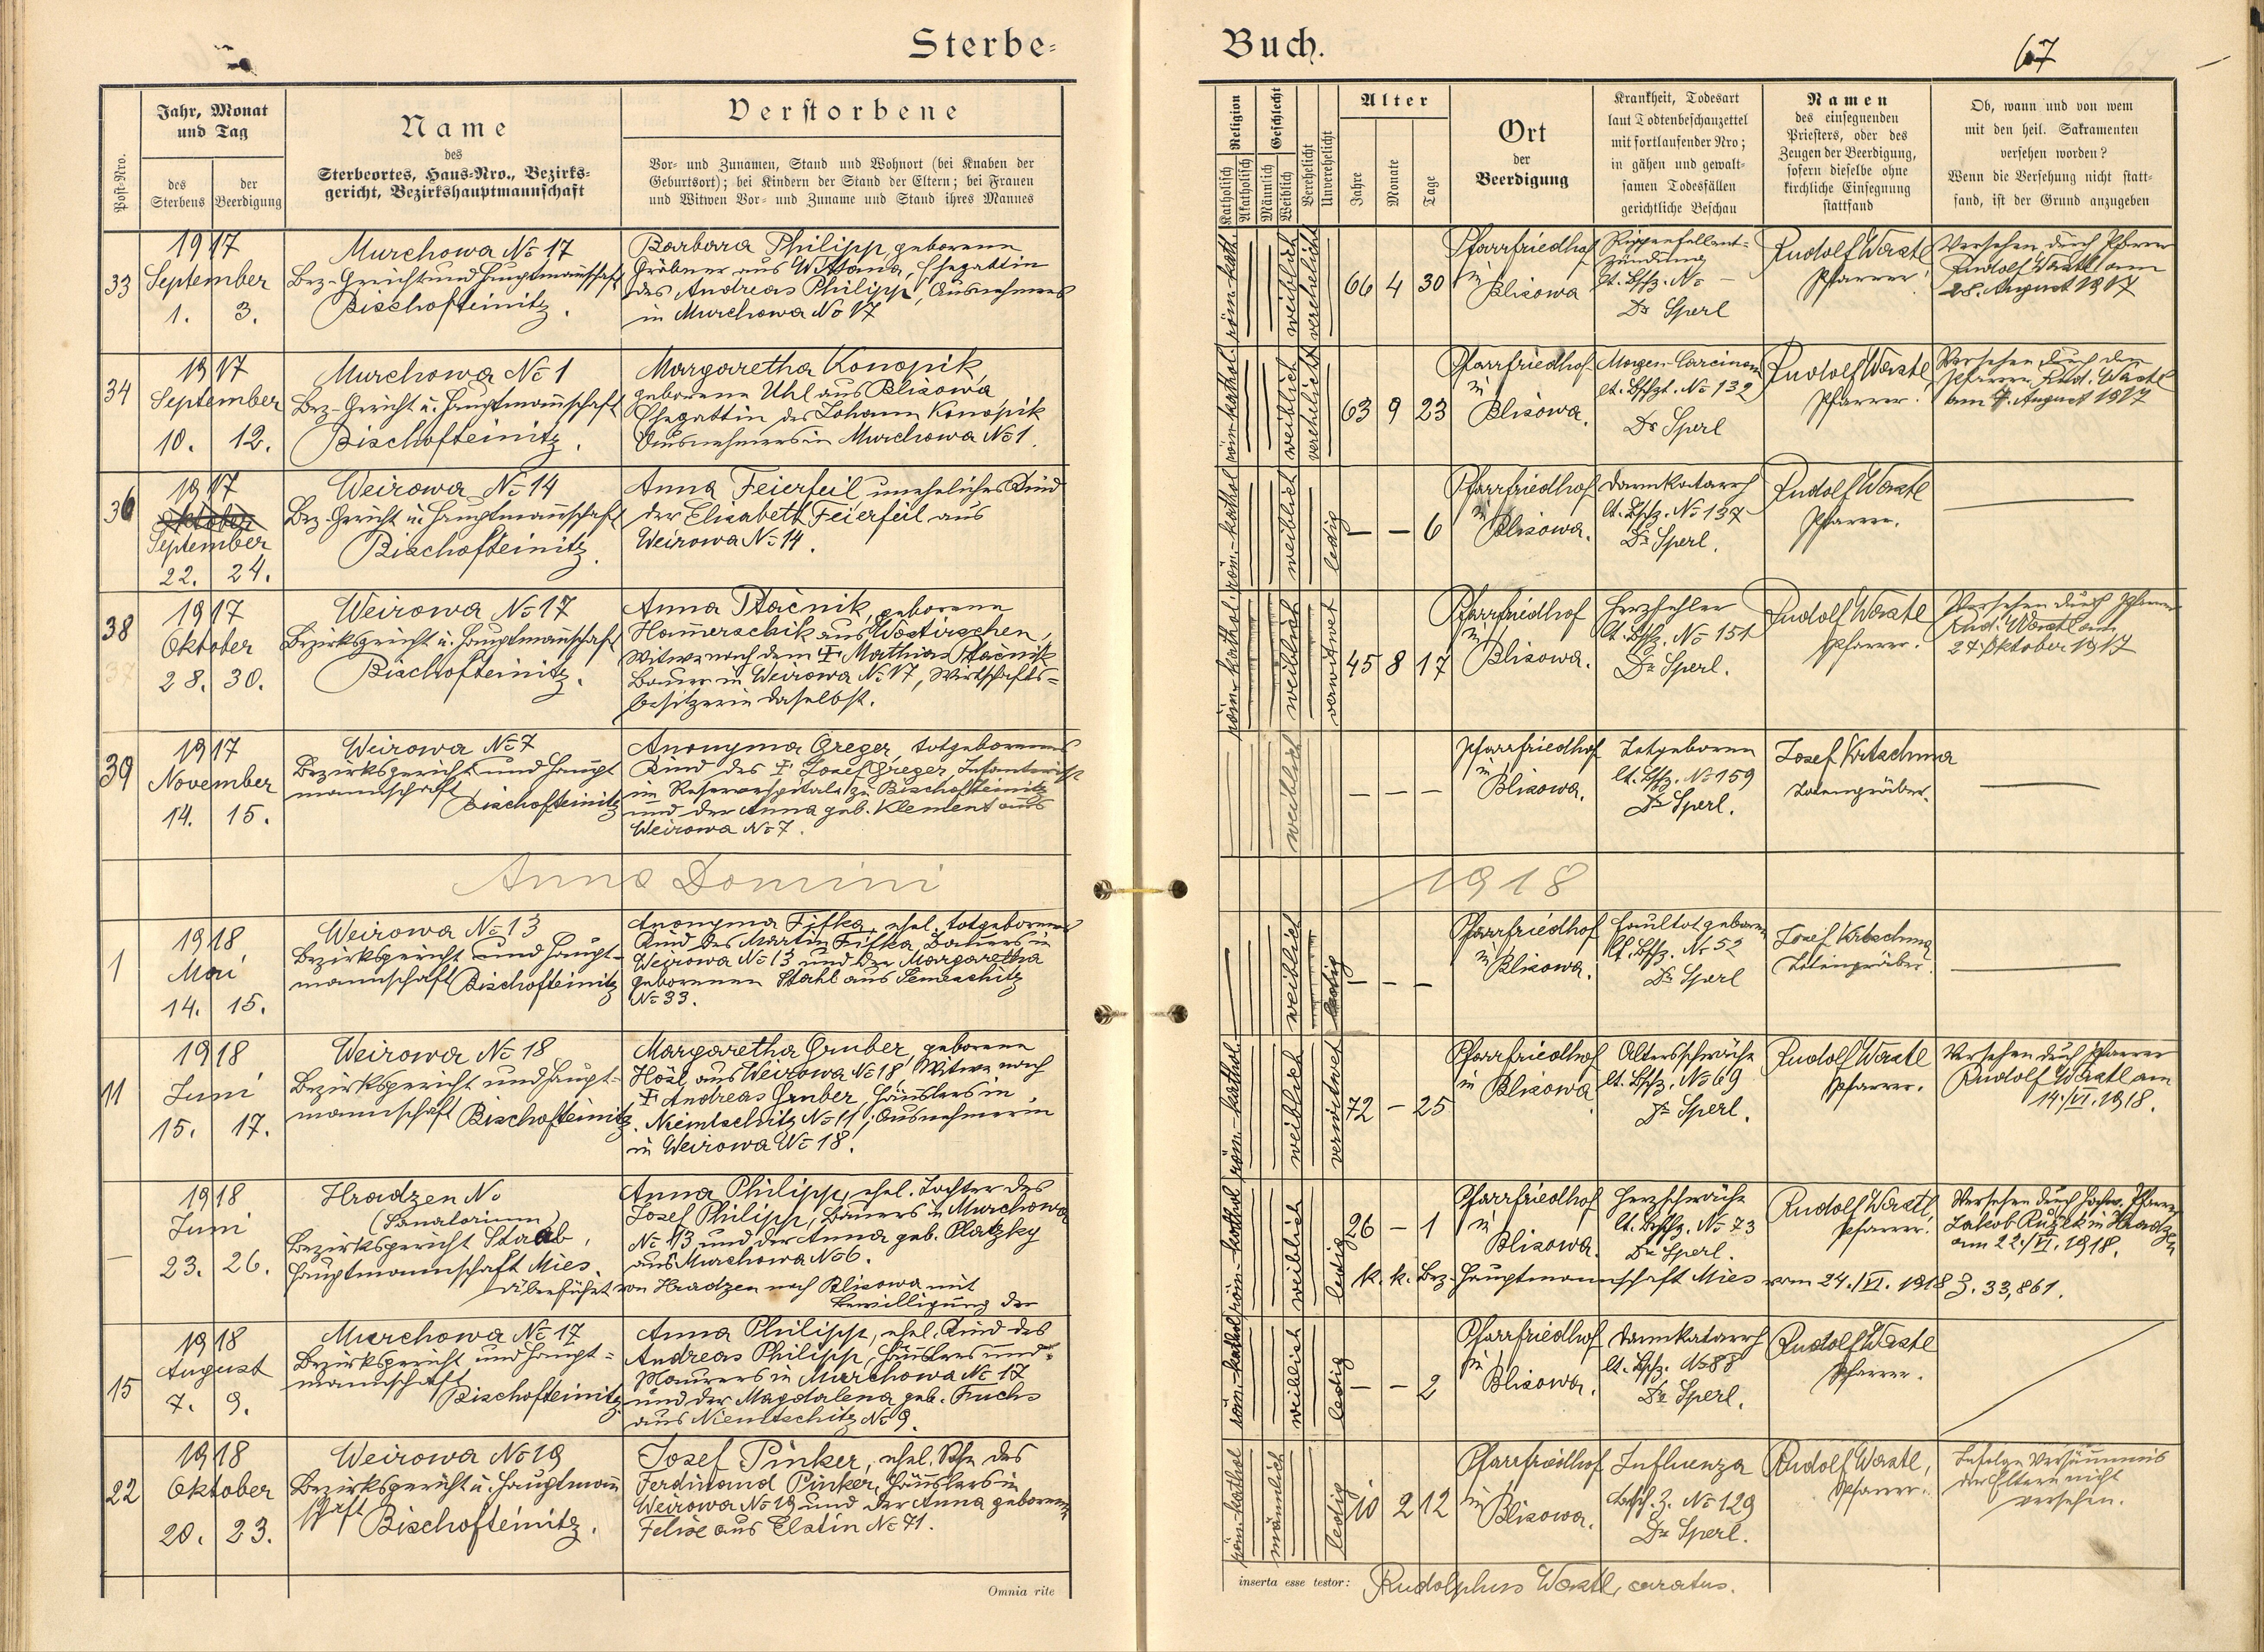 Sterbe-
Buch.
67
Post-Nro.
Jahr, Monat
und Tag
des
Sterbens
der
Beerdigung
Name
des
Sterbeortes, Haus-Nro., Bezirks-
gericht, Bezirkshauptmannschaft
Verstorbene
Vor- und Zunamen, Stand und Wohnort (bei Knaben der
Geburtsort); bei Kindern der Stand der Eltern; bei Frauen
und Witwen Vor- und Zuname und Stand ihres Mannes
Religion
Katholisch
Akatholisch
Geschlecht
Männlich
Weiblich
Verehelicht
Unverehelicht
Alter
Jahre
Monate
Tage
Ort
der
Beerdigung
Krankheit, Todesart
laut Todtenbeschauzettel
mit fortlaufender Nro;
in gähen und gewalt-
samen Todesfällen
gerichtliche Beschau
Namen
des einsegnenden
Priesters, oder des
Zeugen der Beerdigung,
sofern dieselbe ohne
kirchliche Einsegnung
stattfand
Ob, wann und von wem
mit den heil. Sakramenten
versehen worden?
Wenn die Versehung nicht statt-
fand, ist der Grund anzugeben
33
1917
September
1. 3.
Murchowa No 17
Bez-Gericht und Hauptmannschaft
Bischofteinitz.
Barbara Philipp, geborene
Gröbner aus Wittana, Ehegattin
des Andreas Philipp, Ausnehmers
in Murchowa No 17
röm. kath.
weiblich
verehelicht
66 4 30
Pfarrfriedhof
in
Blisowa
Rippenfellent-
zündung
lt. Bschz. No —
Dr Sperl
Rudolf Wastl
Pfarrer.
Versehen durch Pfarrer
Rudolf Wastl am
28. August 1917
34
1917
September
10. 12.
Murchowa No 1
Bez-Gericht u. Hauptmannschaft
Bischofteinitz.
Margaretha Konopik,
geborene Uhl aus Blisowa
Ehegattin des Johann Konopik
Ausnehmers in Murchowa No 1.
röm-kathol
weiblich
verehelicht
63 9 23
Pfarrfriedhof
in
Blisowa.
Magen-Carcinom
lt. Bschzt. No 132
Dr Sperl
Rudolf Wastl
Pfarrer.
Versehen durch den
Pfarrer Rud. Wastl
am 4. August 1917
36
1917
Oktober
September
22. 24.
Weirowa No 14
Bez-Gericht u. Hauptmannschaft
Bischofteinitz.
Anna Feierfeil uneheliches Kind
der Elisabeth Feierfeil aus
Weirowa No 14.
röm.-kathol
weiblich
ledig
— — 6
Pfarrfriedhof
in
Blisowa.
Darmkatarrh
lt. Bschz. No 137
Dr Sperl.
Rudolf Wastl
Pfarrer.
38
1917
Oktober
28. 30.
Weirowa No 17
Bezirksgericht u. Hauptmannschaft
Bischofteinitz.
Anna Ptačnik, geborene
Hammerschik aus Wostirschen,
Witwe nach dem † Mathias Ptačnik
Bauer in Weirowa No 17, Wirtschafts-
besitzerin daselbst.
röm-kathol
weiblich
verwitwet
45 8 17
Pfarrfriedhof
in
Blisowa.
Herzfehler
lt. Bschz. No 151
Dr Sperl.
Rudolf Wastl
Pfarrer.
Versehen durch Pfarrer
Rud. Wastl am
27. Oktober 1917
39
1917
November
14. 15.
Weirowa No 7
Bezirksgericht und Haupt
mannschaft
Bischofteinitz
Anonyma Greger, totgeborenes
Kind des † Josef Greger, Infanterist
im Reservespitale zu Bischofteinitz
und der Anna geb. Klement aus
Weirowa No 7.
weiblich
— — —
Pfarrfriedhof
in
Blisowa.
Totgeboren
lt. Bschz. No 159
Dr Sperl.
Josef Kretschma
Totengräber.
Anno Domini
1918
1
1918
Mai
14. 15.
Weirowa No 13
Bezirksgericht und Haupt-
mannschaft Bischofteinitz
Anonyma Fifka, ehel. totgeborenes
Kind des Martin Fifka, Bauers in
Weirowa No 13 und der Margaretha
geborenen Stahl aus Semeschitz
No 33.
weiblich
ledig
— — —
Pfarrfriedhof
in
Blisowa.
Faultotgeboren
lt. Bschz. No 52
Dr Sperl
Josef Kretschma
Totengräber.
11
1918
Juni
15. 17.
Weirowa No 18
Bezirksgericht und Haupt-
mannschaft Bischofteinitz.
Margaretha Gruber, geborene
Hösl aus Weirowa No 18, Witwe nach
† Andreas Gruber, Häuslers in
Niemtschitz No 11, Ausnehmerin
in Weirowa No 18.
röm.-kathol.
weiblich
verwitwet
72 — 25
Pfarrfriedhof
in
Blisowa.
Altersschwäche
lt. Bschz. No 69
Dr Sperl.
Rudolf Wastl
Pfarrer.
Versehen durch Pfarrer
Rudolf Wastl am
14./VI. 1918.
—
1918
Juni
23. 26.
Hradzen No
(Sanatorium)
Bezirksgericht Staab,
Hauptmannschaft Mies.
Anna Philipp, ehel. Tochter des
Josef Philipp, Bauers in Murchowa
No 13 und der Anna geb. Platzky
aus Murchowa No 6.
Überführt von Hradzen nach Blisowa mit
Bewilligung der
röm-kathol
weiblich
ledig
26 — 1
Pfarrfriedhof
in
Blisowa.
Herzschwäche
lt. Bschz. No 73
Dr Sperl.
Rudolf Wastl,
Pfarrer.
Versehen durch hochw. Pfarrer
Jakob Ružek in Hradzen
am 22./VI. 1918.
k. k. Bez. Hauptmannschaft Mies vom 24./VI. 1918 Z. 33,861.
15
1918
August
7. 9.
Murchowa No 17
Bezirksgericht und Haupt-
mannschaft
Bischofteinitz
Anna Philipp, ehel. Kind des
Andreas Philipp, Häuslers und
Maurers in Murchowa No 17
und der Magdalena geb. Fuchs
aus Niemtschitz No 9.
röm-kathol
weiblich
ledig
— — 2
Pfarrfriedhof
in
Blisowa.
Darmkatarrh
lt. Bschz. No 88
Dr Sperl.
Rudolf Wastl
Pfarrer.
22
1918
Oktober
20. 23.
Weirowa No 19
Bezirksgericht u. Hauptmann
schaft
Bischofteinitz.
Josef Pinker, ehel. Sohn des
Ferdinand Pinker, Häuslers in
Weirowa No 19 und der Anna geborenen
Felixe aus Elstin No 71.
röm-kathol
männlich
ledig
10 2 12
Pfarrfriedhof
in
Blisowa.
Influenza
Bsch. Z. No 129
Dr Sperl.
Rudolf Wastl,
Pfarrer.
Infolge Versäumnis
der Eltern nicht
versehen.
Omnia rite
inserta esse testor: Rudolphus Wastl, curatus.